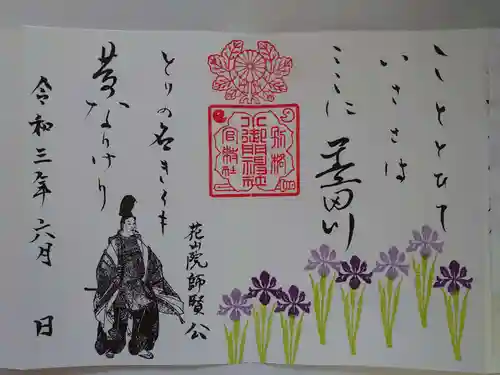 こととひて
いささは
ここに 墨田川
とりの名きくも
都なりけり
令和三年 六月 日
花山院師賢公
別格
小御門神社
官幣社